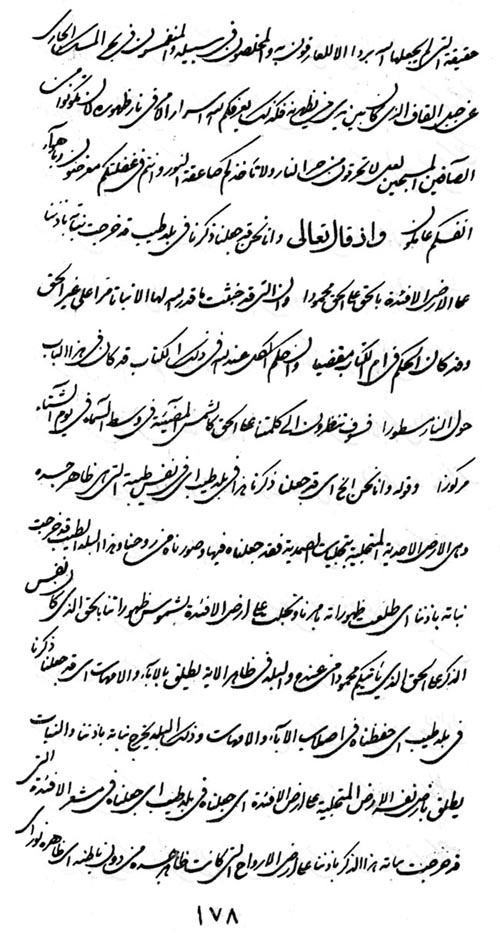 حقيقة التي لم يجعلها الله بردا الا للعارفون به والمخلصون في سبيله والمنغمسون في بحر المسك الجاري
عن جبل القاف الذي كان بين يدي يظهره فلذلك يعرفكم الله اسرار الامر في نار ظهوره لان تكونوا من
الصآفين المسبحين لا تحرقون من حر النار ولا تأخذكم صاعقة النور وانتم في غفلتكم معرضون وباهوآء
انفسكم عاملون واذ قال تعالى وانا نحن قد جعلنا ذكرنا في بلد طيب قد خرجت نباته باذننا
على الارض الافئدة بالحق على الحق محمودا وان التي قد خبثت ما قدر الله لها الا نباتا مرا على غير الحق
وقد كان الحكم في ام الكتاب مقضيا وان حكم الكل عند الله في ذلك الكتاب قد كان في هذا الباب
حول النار مسطورا فسوف تنظرون الى كلمتنا على الحق كالشمس المضيئة في وسط السماء في يوم الشتاء
مركوزا وقوله وانا نحن الخ اي قد جعلنا ذكرنا هذا في بلد طيب اي في نفس طيبة التي هي ظاهر جسده
وهي الارض الاحدية المتجلية بتجليات الصمدية فقد جعلناه فيها وصورناه من روحنا وهذا البلد الطيب قد خرجت
نباته باذننا اي طلعت ظهوراته بامرنا وتجلت على ارض الافئدة لشموس ظهوراتنا بالحق الذي كان نفس
الذكر على الحق الذي يأتيكم محمودا من عنده والبلد في ظاهر الاية يطلق بالاباء والامهات اي قد جعلنا ذكرنا
في بلد طيب اي حفظناه في اصلاب الابآء والامهات وذلك البلد يخرج نباته باذننا والنبات
يطلق بارض نفسه الارض المتجلية على ارض الافئدة اي جعلناه في بلد طيب اي جعلناه في مشعر الافئدة التي
قد خرجت نباته هذا الذكر باذننا على ارض الارواح التي كانت ظاهر جسده من دون باطنه اي ظاهره نور اي
١٧٨